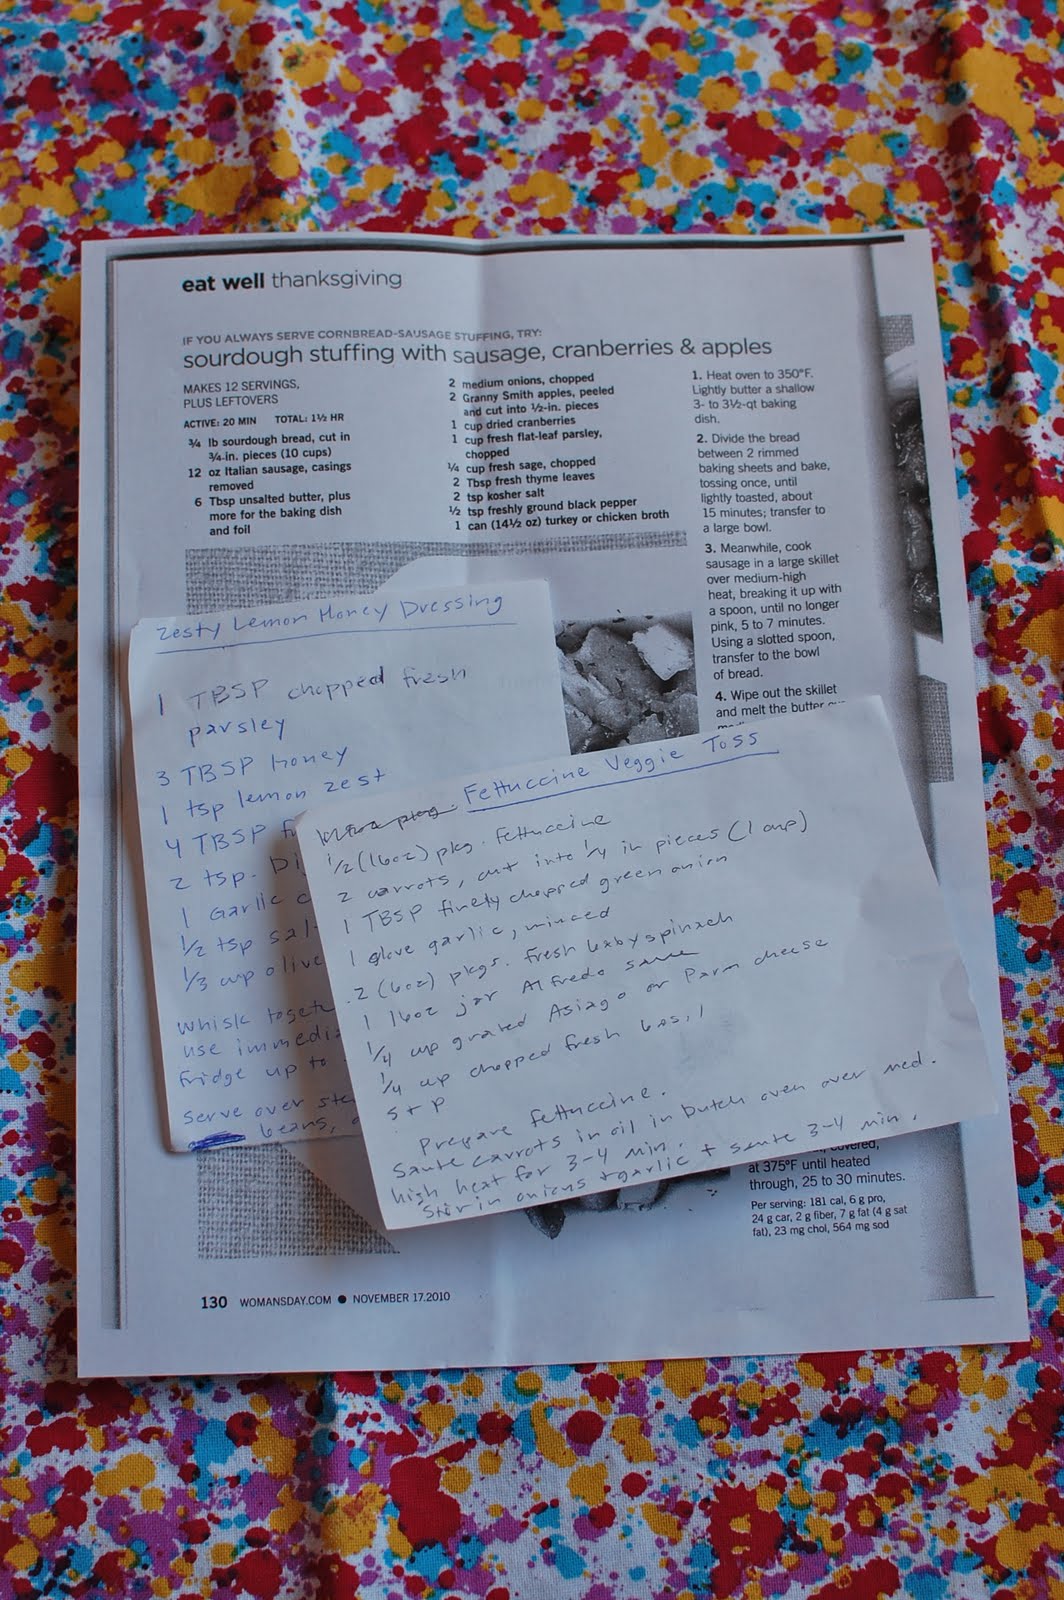 eat well thanksgiving
IF YOU ALWAYS SERVE CORNBREAD-SAUSAGE STUFFING, TRY:
sourdough stuffing with sausage, cranberries & apples
MAKES 12 SERVINGS,
PLUS LEFTOVERS
ACTIVE: 20 MIN TOTAL: 1½ HR
¾ lb sourdough bread, cut in
¾-in. pieces (10 cups)
12 oz Italian sausage, casings
removed
6 Tbsp unsalted butter, plus
more for the baking dish
and foil
2 medium onions, chopped
2 Granny Smith apples, peeled
and cut into ½-in. pieces
1 cup dried cranberries
1 cup fresh flat-leaf parsley,
chopped
¼ cup fresh sage, chopped
2 Tbsp fresh thyme leaves
2 tsp kosher salt
½ tsp freshly ground black pepper
1 can (14½ oz) turkey or chicken broth
1. Heat oven to 350°F.
Lightly butter a shallow
3- to 3½-qt baking
dish.
2. Divide the bread
between 2 rimmed
baking sheets and bake,
tossing once, until
lightly toasted, about
15 minutes; transfer to
a large bowl.
3. Meanwhile, cook
sausage in a large skillet
over medium-high
heat, breaking it up with
a spoon, until no longer
pink, 5 to 7 minutes.
Using a slotted spoon,
transfer to the bowl
of bread.
4. Wipe out the skillet
and melt the butter
covered,
at 375°F until heated
through, 25 to 30 minutes.
Per serving: 181 cal, 6 g pro,
24 g car, 2 g fiber, 7 g fat (4 g sat
fat), 23 mg chol, 564 mg sod
130 WOMANSDAY.COM ● NOVEMBER 17.2010
Zesty Lemon Honey Dressing
1 TBSP chopped fresh
parsley
3 TBSP honey
1 tsp lemon zest
4 TBSP
2 tsp.
1 Garlic
½ tsp
⅓ cup olive
whisk
use
fridge up to
serve over
beans,
Fettuccine Veggie Toss
½ (16oz) pkg. fettuccine
2 carrots, cut into ¼ in pieces (1 cup)
1 TBSP finely chopped green onion
1 glove garlic, minced
2 (6oz) pkgs. fresh baby spinach
1 16oz jar Alfredo sauce
¼ cup grated Asiago or Parm cheese
¼ cup chopped fresh basil
S + P
Prepare fettuccine.
Saute carrots in oil in dutch oven over med.
high heat for 3-4 min.
Stir in onions + garlic + saute 3-4 min.